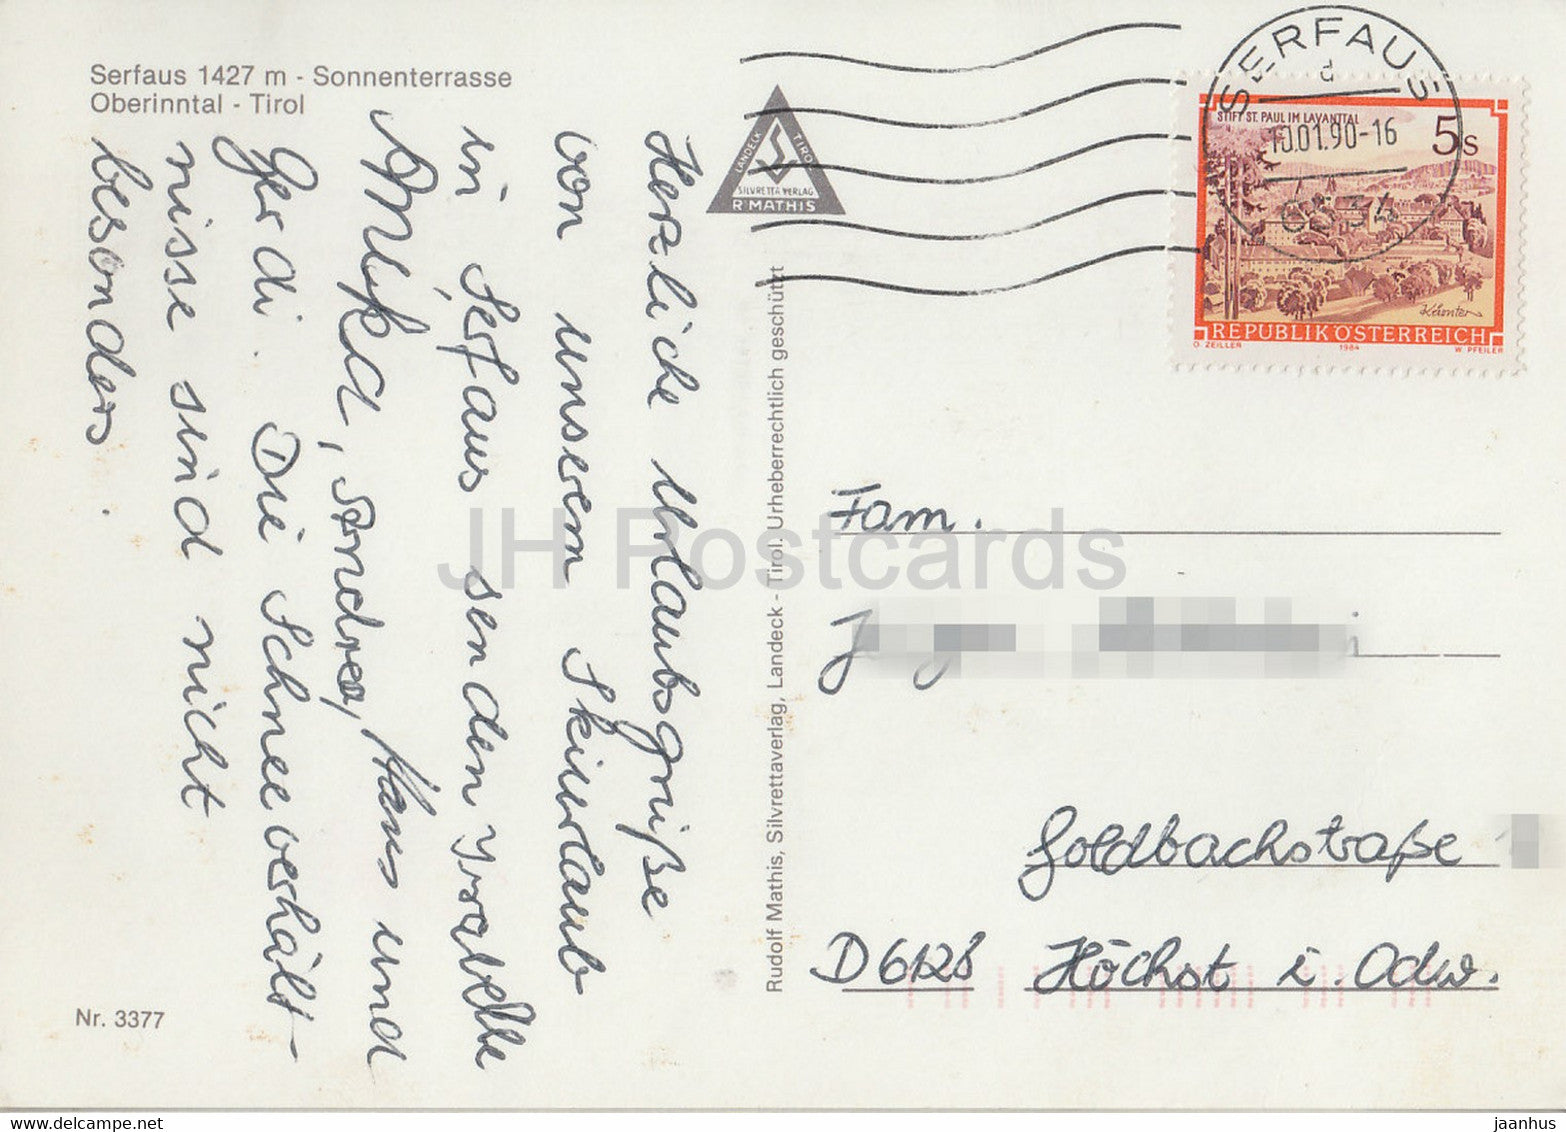 Serfaus 1427 m - Sonnenterrasse
Oberinntal - Tirol
Herzliche Urlaubsgrüße
von unserem Skiurlaub
in Serfaus senden Isabelle
Anika, Andrea, Hans und
Gerdi. Die Schneeverhält-
nisse sind nicht
besonders.
Nr. 3377
LANDECK TIROL
SILVRETTA VERLAG
R. MATHIS
Rudolf Mathis, Silvrettaverlag, Landeck - Tirol. Urheberrechtlich geschützt
SERFAUS
d
10.01.90-16
STIFT ST. PAUL IM LAVANTTAL
5 S
Kärnten
REPUBLIK ÖSTERREICH
O. ZEILLER 1984 W. PFEILER
Fam.
Goldbachstraße
D 6128 Höchst i. Odw.
JH Postcards
www.delcampe.net
jaanhus